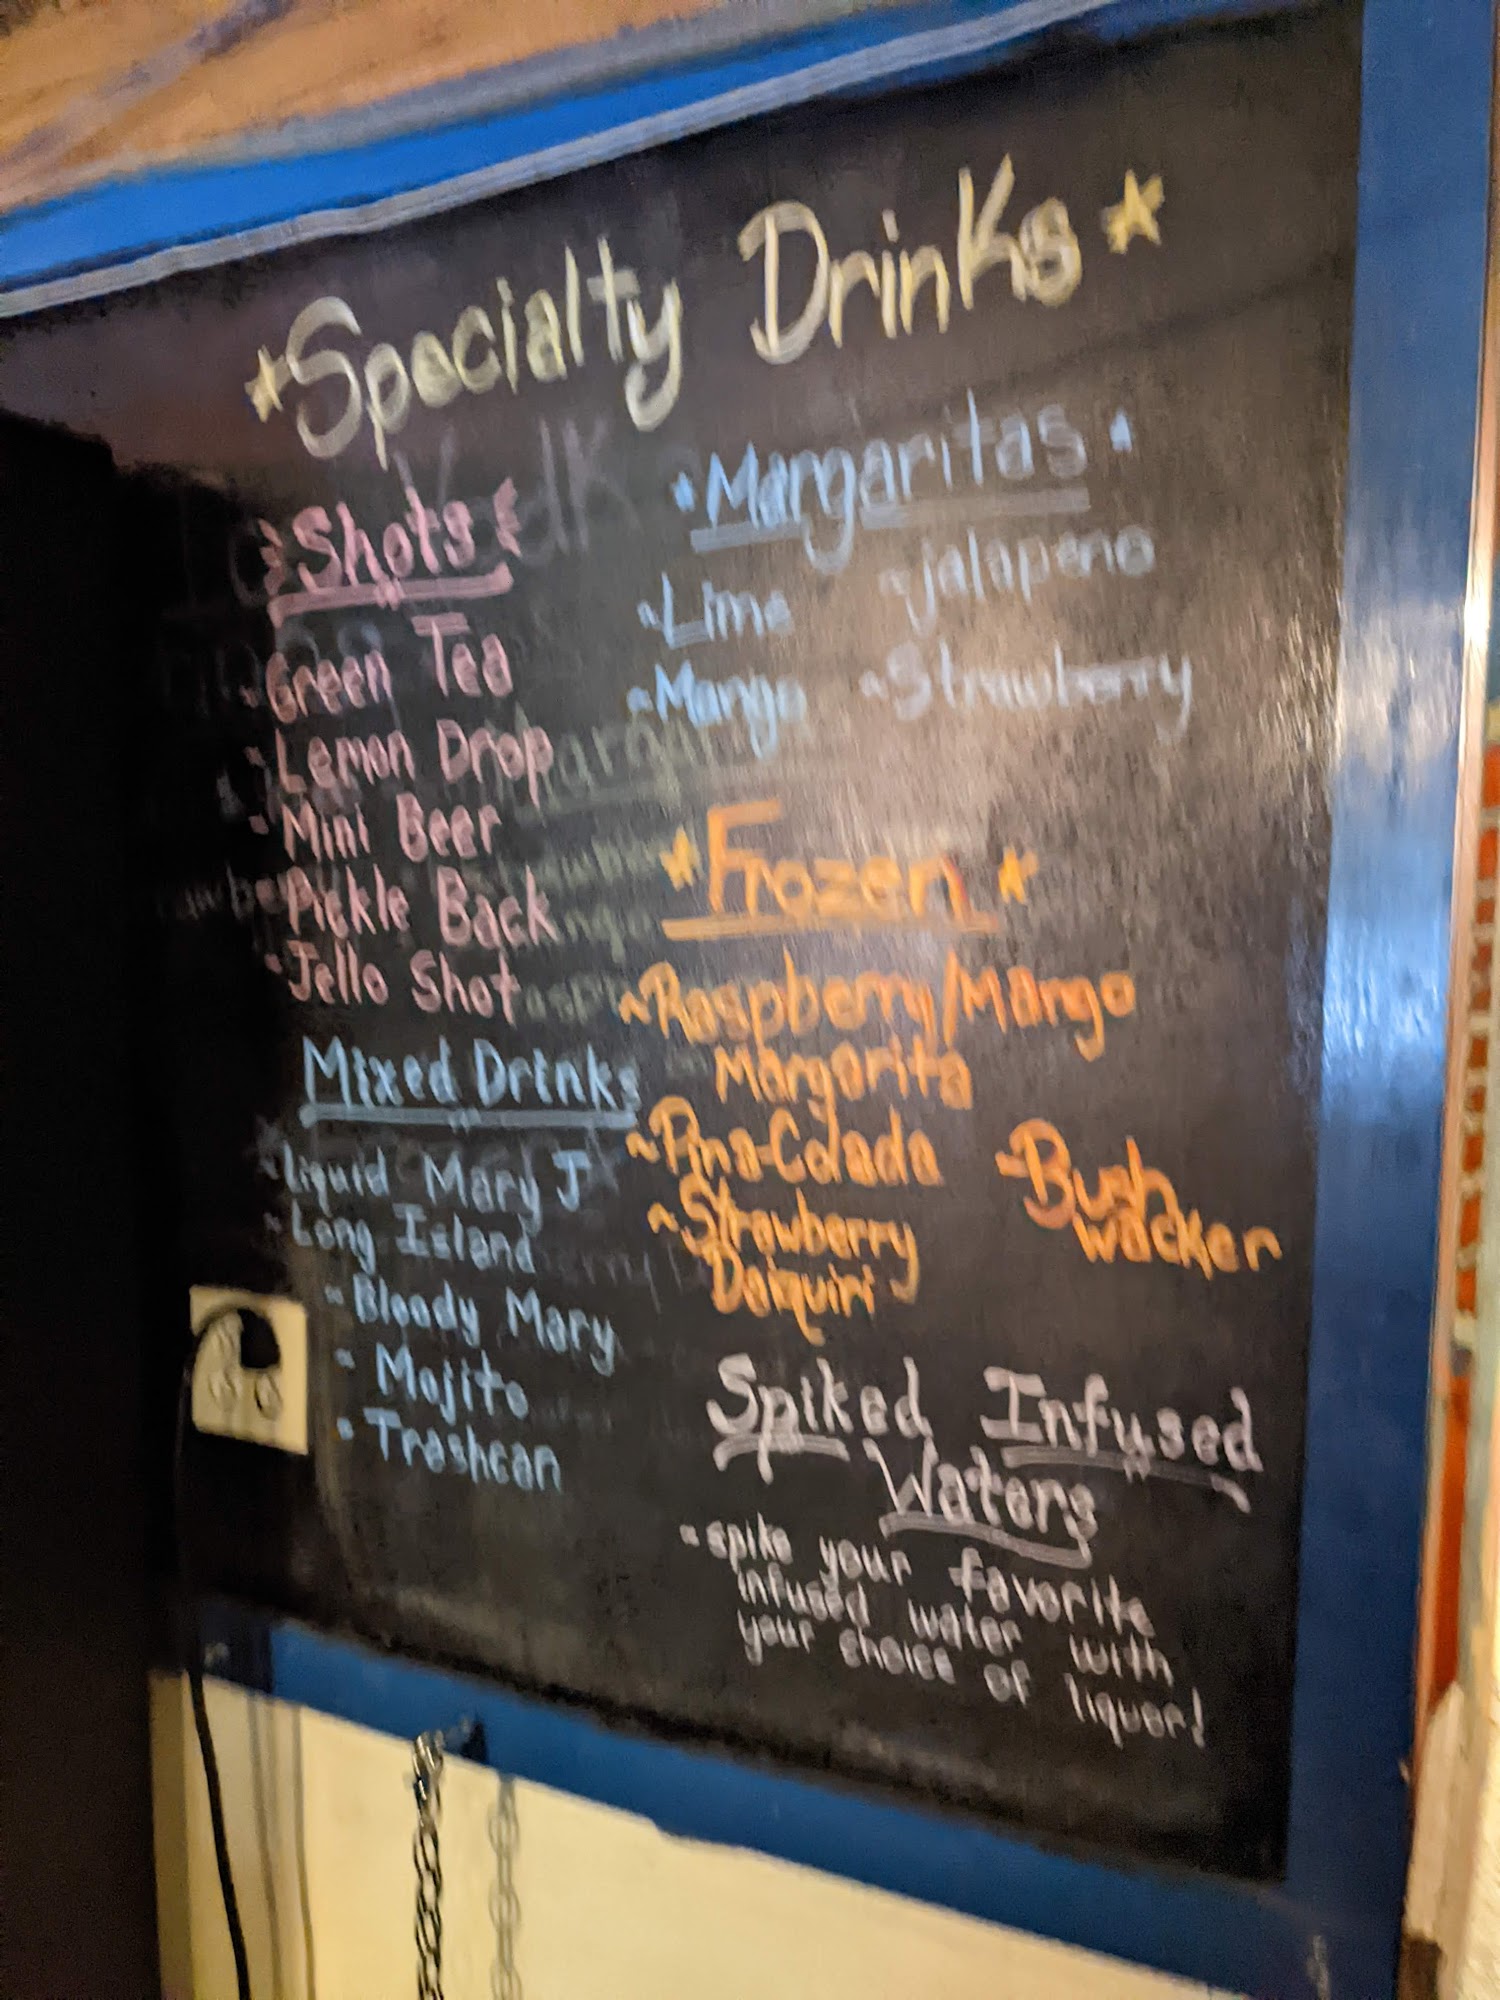 Specialty Drinks
Shots
Green Tea
Lemon Drop
Mini Beer
Pickle Back
Jello Shot
Mixed Drinks
Liquid Mary J
Long Island
Bloody Mary
Mojito
Trashcan
Margaritas
~Lime ~jalapeno
~Mango ~Strawberry
Frozen
~Raspberry/Mango
Margarita
~Pina-Colada
~Strawberry
Daiquiri
~Bush
wacker
Spiked Infused
Waters
~spike your favorite
infused water with
your choice of liquor!